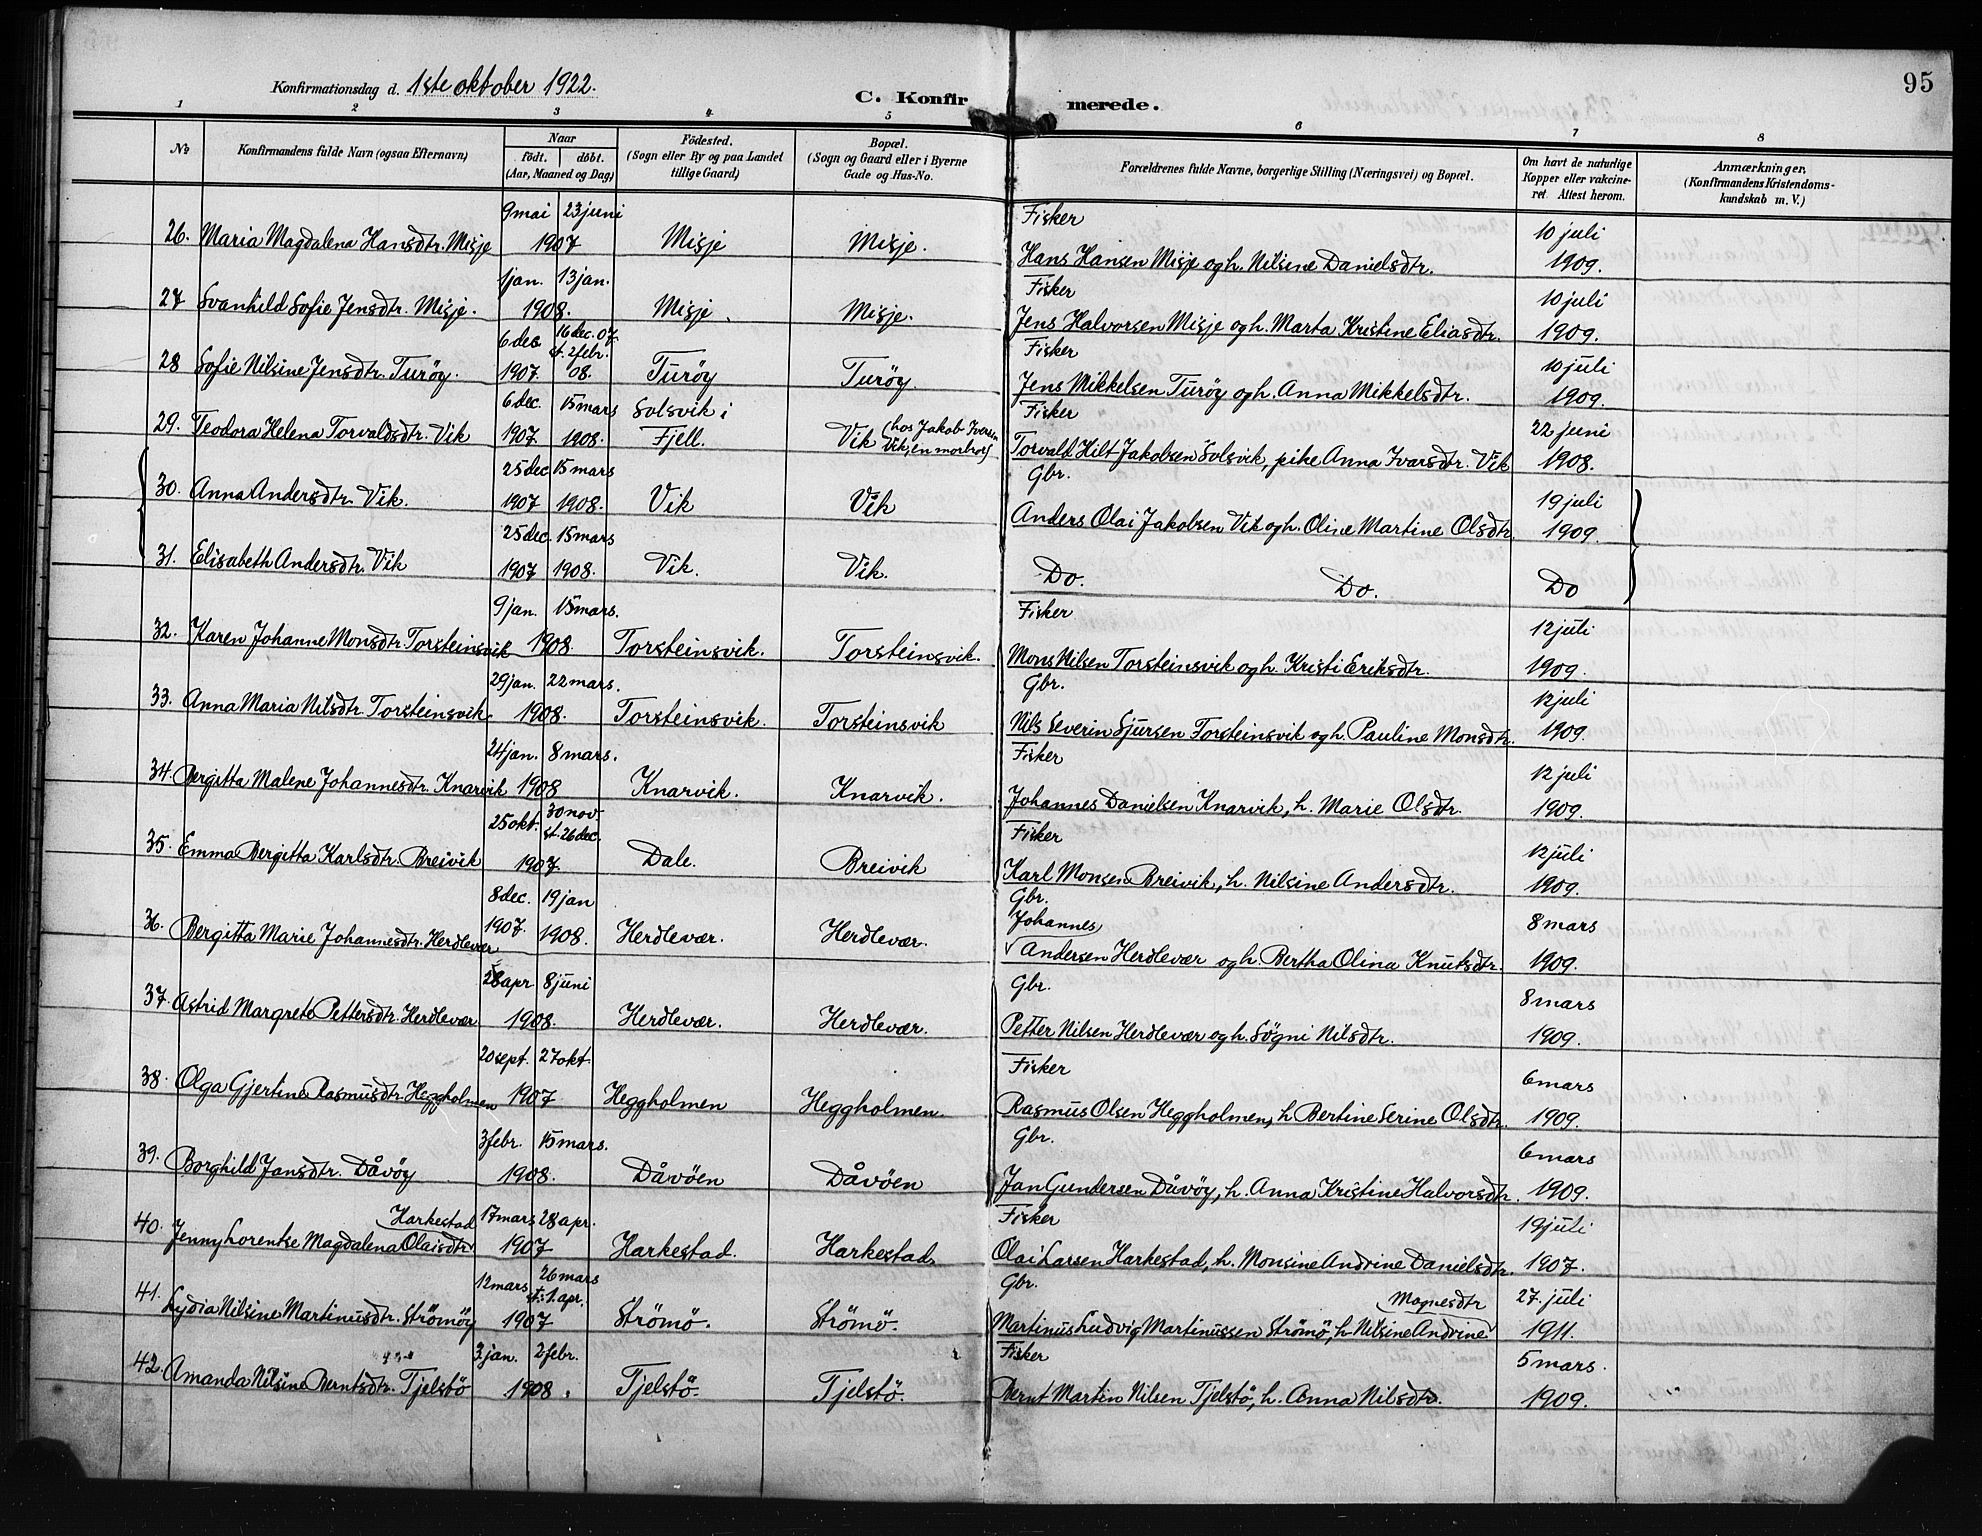 95
Konfirmationsdag d. 1ste oktober 1922.
C. Konfirmerede.
1 2 3 4 5 6 7 8
No
Konfirmandens fulde Navn (ogsaa Efternavn)
Naar
födt. döbt.
(Aar, Maaned og Dag)
Födested.
(Sogn eller By og paa Landet
tillige Gaard)
Bopæl.
(Sogn og Gaard eller i Byerne
Gade og Hus-No.
Forældrenes fulde Navne, borgerlige Stilling (Næringsvei) og Bopæl.
Om havt de naturlige
Kopper eller vakcine-
ret. Attest herom.
Anmærkninger.
(Konfirmandens Kristendoms-
kundskab m. V.)
9 mai 23 juni Fisker 10 juli
26. Maria Magdalena Hansdtr. Misje 1907 Misje Misje. Hans Hansen Misje og h. Nilsine Danielsdtr. 1909.
1 jan. 13 jan. Fisker 10 juli
27 Svanhild Sofie Jensdtr. Misje. 1908. Misje. Misje. Jens Halvorsen Misje og h. Marta Kristine Eliasdtr. 1909.
6 dec 16 dec. 07. st. 2 febr. Fisker 10 juli
28 Sofie Nilsine Jensdtr. Turöy. 1907. 08. Turöy Turöy Jens Mikkelsen Turöy og h. Anna Mikkelsdtr. 1909.
6 dec. 15 mars Solsvik i Fisker 22 juni
29. Teodora Helena Torvaldsdtr. Vik 1907 1908. Fjell. Vik (hos Jakob Iversen Vik, en morbror) Torvald Hilt Jakobsen Solsvik, pike Anna Ivarsdtr. Vik 1908.
25 dec 15 mars Gbr. 19 juli
30. Anna Andersdtr. Vik. 1907 1908. Vik Vik Anders Olai Jakobsen Vik og h. Oline Martine Olsdtr. 1909.
25 dec. 15 mars
31. Elisabeth Andersdtr. Vik 1907 1908. Vik. Vik. Do. Do. Do
9 jan. 15 mars. Fisker 12 juli
32. Karen Johanne Monsdtr. Torsteinsvik 1908. Torsteinsvik. Torsteinsvik. Mons Nilsen Torsteinsvik og h. Kristi Eriksdtr. 1909.
29 jan. 22 mars. Gbr. 12 juli
33. Anna Maria Nilsdtr. Torsteinsvik 1908. Torsteinsvik. Torsteinsvik Nils Severin Sjursen Torsteinsvik og h. Pauline Monsdtr. 1909.
24 jan. 8 mars. Fisker 12 juli
34. Bergitta Malene Johannesdtr. Knarvik 1908 Knarvik. Knarvik. Johannes Danielsen Knarvik, h. Marie Olsdtr. 1909.
25 okt. 30 nov. st. 26 dec. Fisker 12 juli
35. Emma Bergitta Karlsdtr. Breivik 1907. Dale. Breivik Karl Monsen Breivik, h. Nilsine Andersdtr. 1909.
8 dec. 19 jan Gbr. Johannes 8 mars
36. Bergitta Marie Johannesdtr. Herdlevær 1907. 1908. Herdlevær. Herdlevær. Andersen Herdlevær og h. Bertha Olina Knutsdtr. 1909.
28 apr 8 juni Gbr. 8 mars
37. Astrid Margrete Pettersdtr. Herdlevær 1908. Herdlevær. Herdlevær. Petter Nilsen Herdlevær og h. Sögni Nilsdtr. 1909.
20 sept. 27 okt. Fisker 6 mars
38. Olga Gjertine Rasmusdtr. Heggholmen 1907 Heggholmen Heggholmen. Rasmus Olsen Heggholmen, h. Bertine Serine Olsdtr. 1909.
3 febr. 15 mars. Gbr. 6 mars
39. Borghild Jansdtr. Dåvöy 1908. Dåvöen Dåvöen Jan Gundersen Dåvöy, h. Anna Kristine Halvorsdtr. 1909.
Harkestad 17 mars 28 apr. Fisker 19 juli
40. Jenny Lorentse Magdalena Olaisdtr. 1907 Harkestad. Harkestad. Olai Larsen Harkestad, h. Monsine Andrine Danielsdtr. 1907.
12 mars 26 mars st. 1. apr. Gbr. Mognesdtr 27. juli
41. Lydia Nilsine Martinusdtr. Strömöy 1907 Strömö. Strömö. Martinus Ludvig Martinussen Strömö, h. Nilsine Andrine 1911.
3 jan. 2 febr. Fisker 5 mars.
42. Amanda Nilsine Berntsdtr. Tjelstö 1908. Tjelstö. Tjelstö. Bernt Martin Nilsen Tjelstö, h. Anna Nilsdtr. 1909.